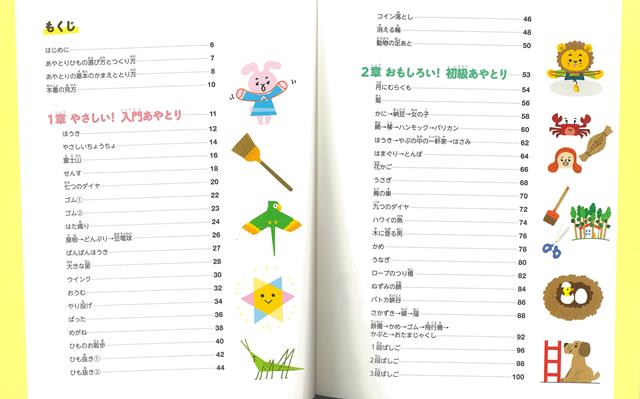 もくじ
はじめに 6
あやとりひもの選び方とつくり方 7
あやとりの基本のかまえととり方 8
本書の見方 10
1章 やさしい! 入門あやとり 11
ほうき 12
やさしいちょうちょ 14
富士山 16
せんす 18
七つのダイヤ 20
ゴム① 22
ゴム② 23
はた織り 24
屋根→どんぶり→豆電球 26
ぱんぱんほうき 27
大きな星 28
ウインク 30
おうむ 32
やり投げ 34
ばった 36
めがね 38
ひものお散歩 40
ひも抜き① 42
ひも抜き② 44
コイン落とし 46
消える輪 48
動物の足あと 50
2章 おもしろい! 初級あやとり 53
月にむらくも 54
菊 56
かに→納豆→女の子 58
網→琴→ハンモック→バリカン 60
ほうき→やぶの中の一軒家→はさみ 62
はまぐり→とんぼ 64
花かご 66
うさぎ 68
鳥の巣 70
八つのダイヤ 72
ハワイの島 74
木に登る男 76
かめ 78
うなぎ 80
ロープのつり橋 82
ねずみの顔 84
バトカ峡谷 86
さかずき→蝶→猫 88
鉄橋→かめ→ゴム→飛行機→
かぶと→おたまじゃくし 92
1段ばしご 96
2段ばしご 98
3段ばしご 100